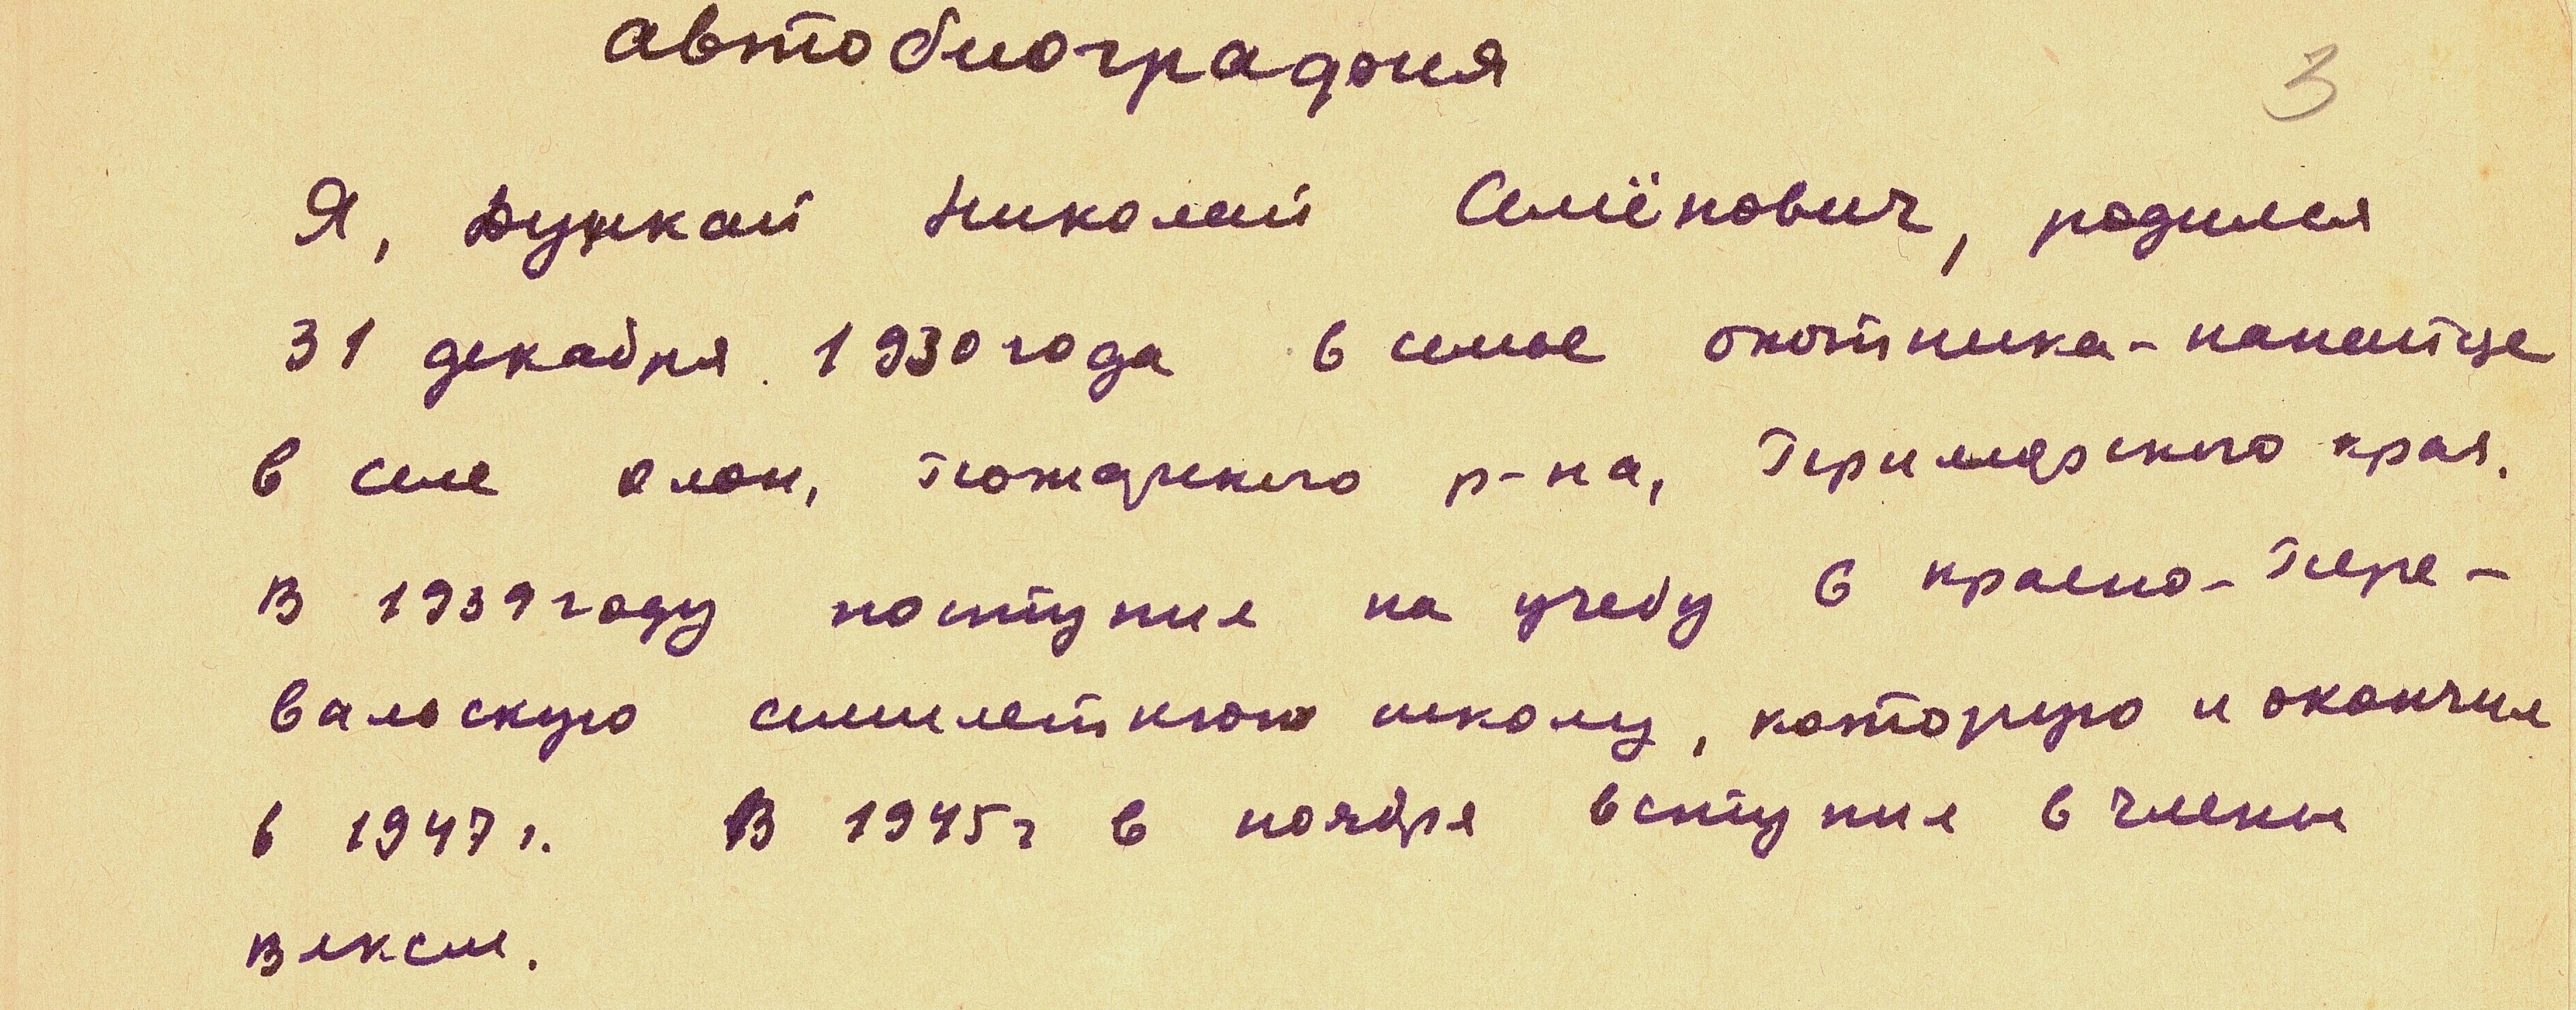 автобиография
3
Я, Дункай Николай Семёнович, родился
31 декабря 1930 года в семье охотника-нанайце
в селе Олон, Пожарского р-на, Приморского края.
В 1939 году поступил на учебу в красно-Пере-
вальскую семилетнюю школу, которую и окончил
в 1947 г. В 1945 г в ноября вступил в члены
влксм.